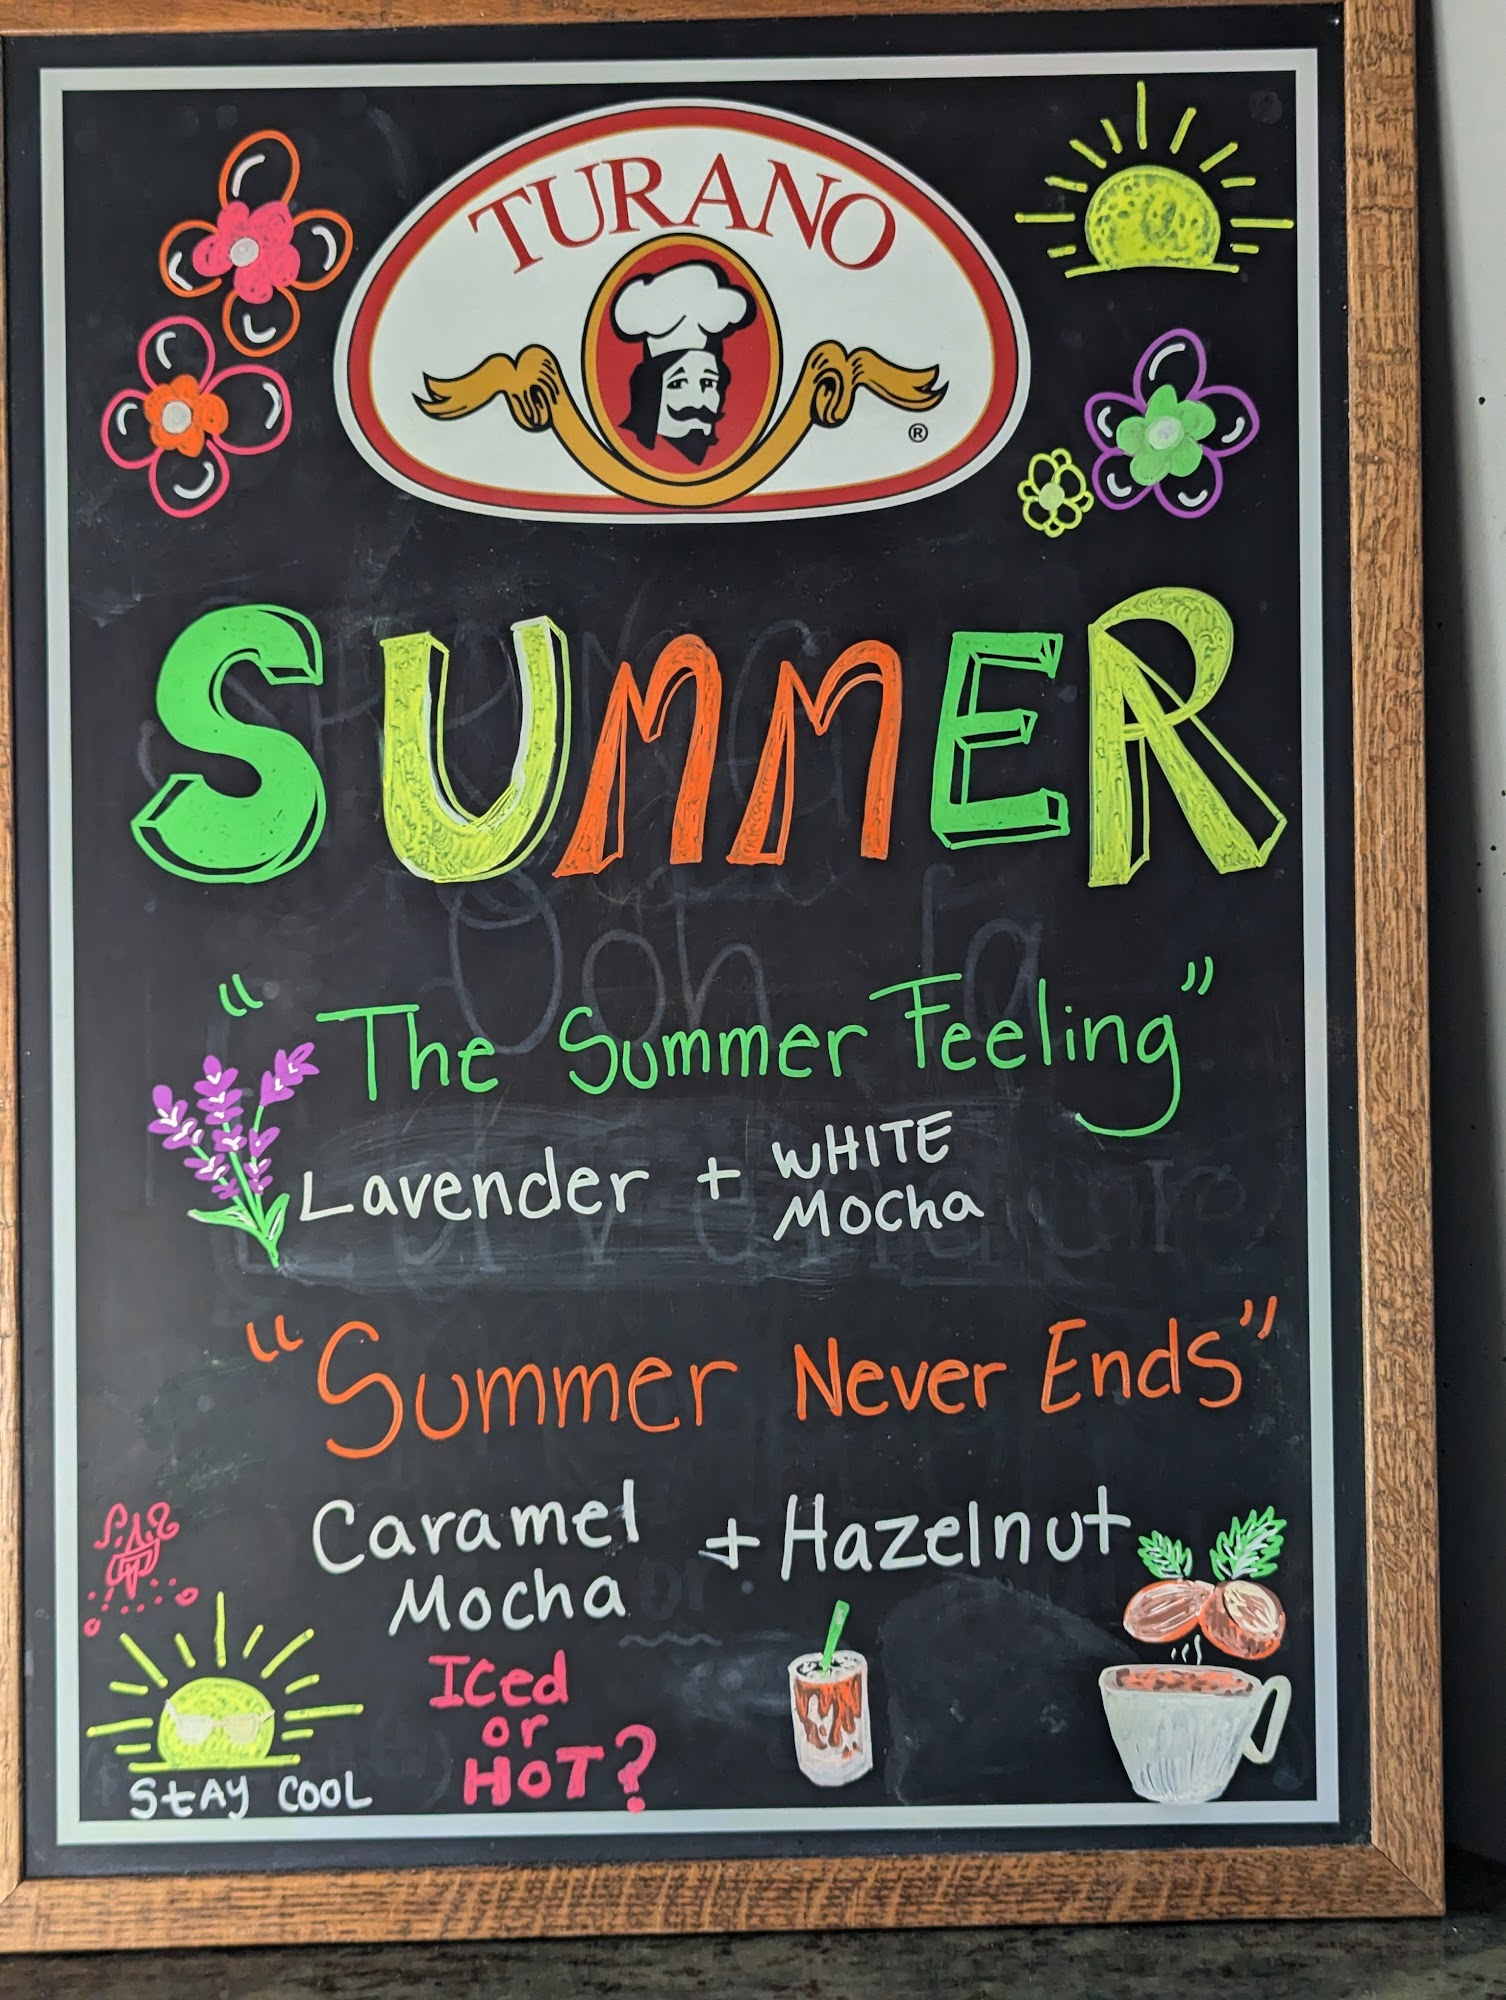 TURANO
®
SUMMER
"The Summer Feeling"
Lavender + WHITE
Mocha
"Summer Never Ends"
Caramel + Hazelnut
Mocha
Iced
or
HOT?
Stay COOL